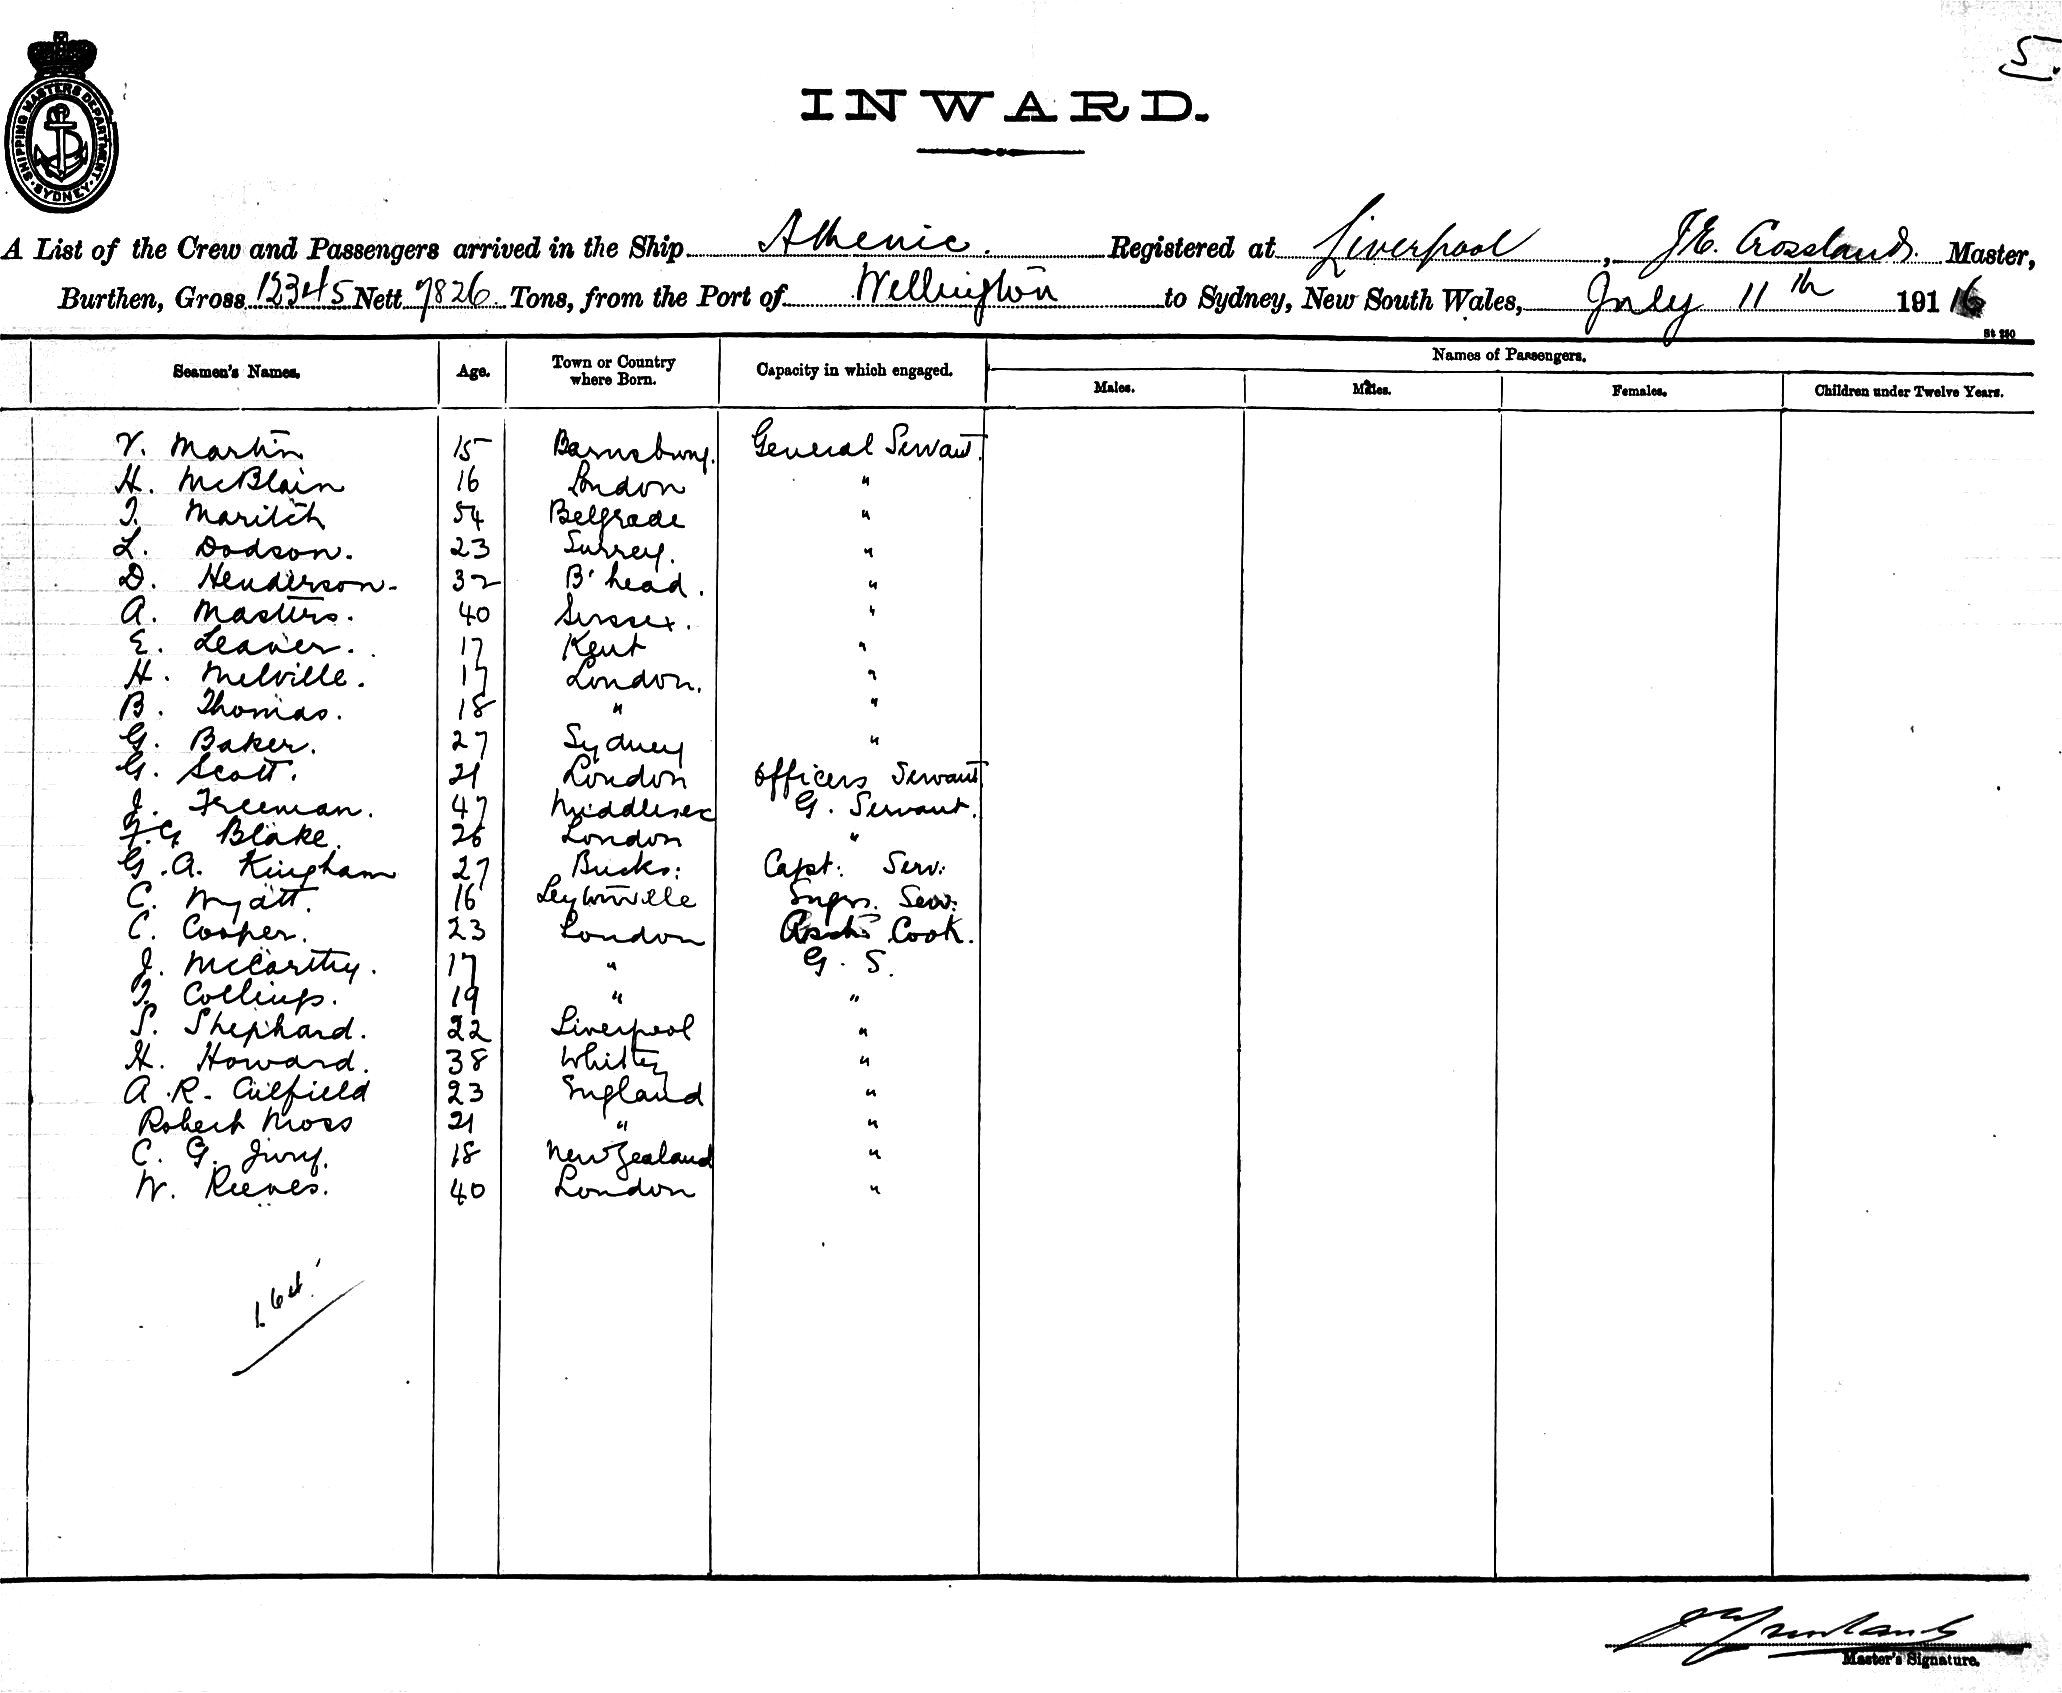 5.
SHIPPING MASTERS DEPARTMENT. SYDNEY.
INWARD.
A List of the Crew and Passengers arrived in the Ship Athenic. Registered at Liverpool, J E. Crossland. Master,
Burthen, Gross 12345 Nett 7826 Tons, from the Port of Wellington to Sydney, New South Wales, July 11th 1916
St 280
Names of Passengers.
Seamen's Names. Age. Town or Country where Born. Capacity in which engaged. Males. Males. Females. Children under Twelve Years.
V. Martin 15 Barnsbury. General Servant.
H. McBlain 16 London "
T. Maritch 54 Belgrade "
L. Dodson. 23 Surrey. "
D. Henderson- 32 B'head. "
A. Masters. 40 Sussex. "
E. Leaver. 17 Kent "
H. Melville. 17 London. "
B. Thomas. 18 " "
G. Baker. 27 Sydney "
G. Scott. 21 London Officers Servant
J. Freeman. 47 Middlesex G. Servant.
G Blake. 26 London "
G. A. Kingham 27 Bucks: Capt: Serv:
C. Wyatt. 16 Leytonville Engrs. Serv:
C. Cooper. 23 London Asst Cook.
J. McCarthy. 17 " G. S.
T. Collins. 19 " "
S. Shephard. 22 Liverpool "
H. Howard. 38 Whitby "
A. R. 23 England "
Robert Moss 21 " "
C. G. 18 New Zealand "
W. Reeves. 40 London "
164.
Master's Signature.